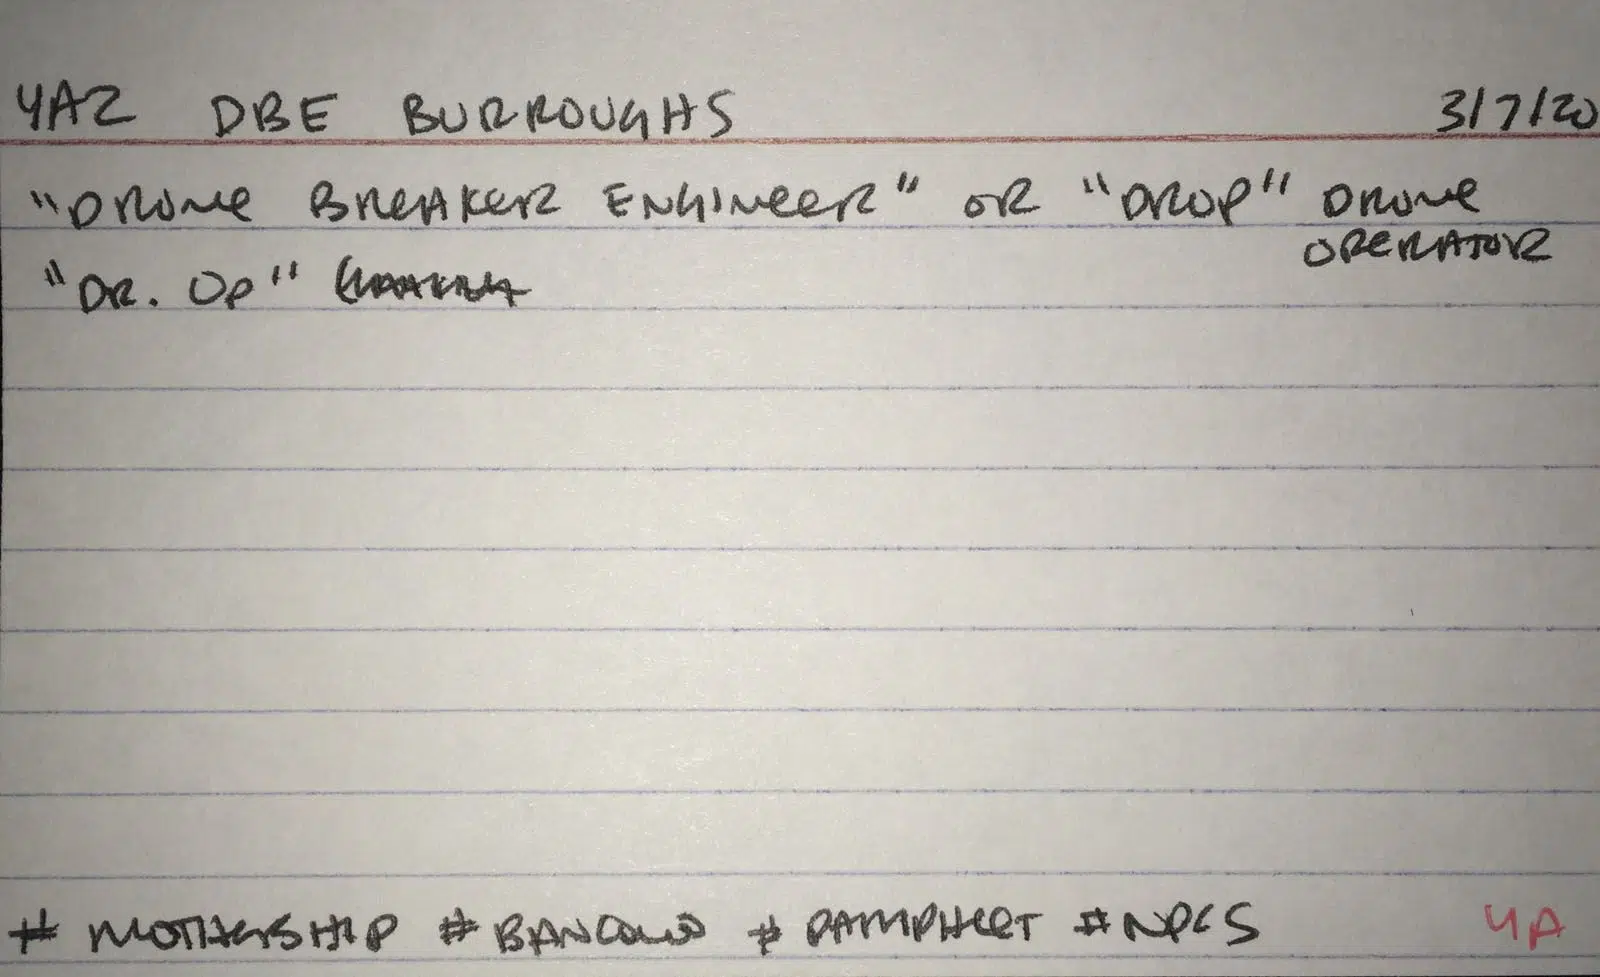 4A2 DBE BURROUGHS 3/7/20
"DRONE BREAKER ENGINEER" OR "DROP" DRONE
OPERATOR
"DR. OP"
# MOTHERSHIP # # PAMPHLET # NPCS 4A